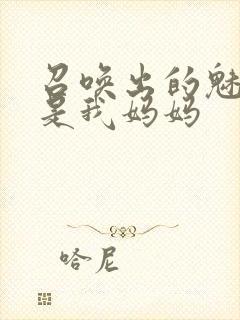 召唤出的魅
是我妈妈
哈尼